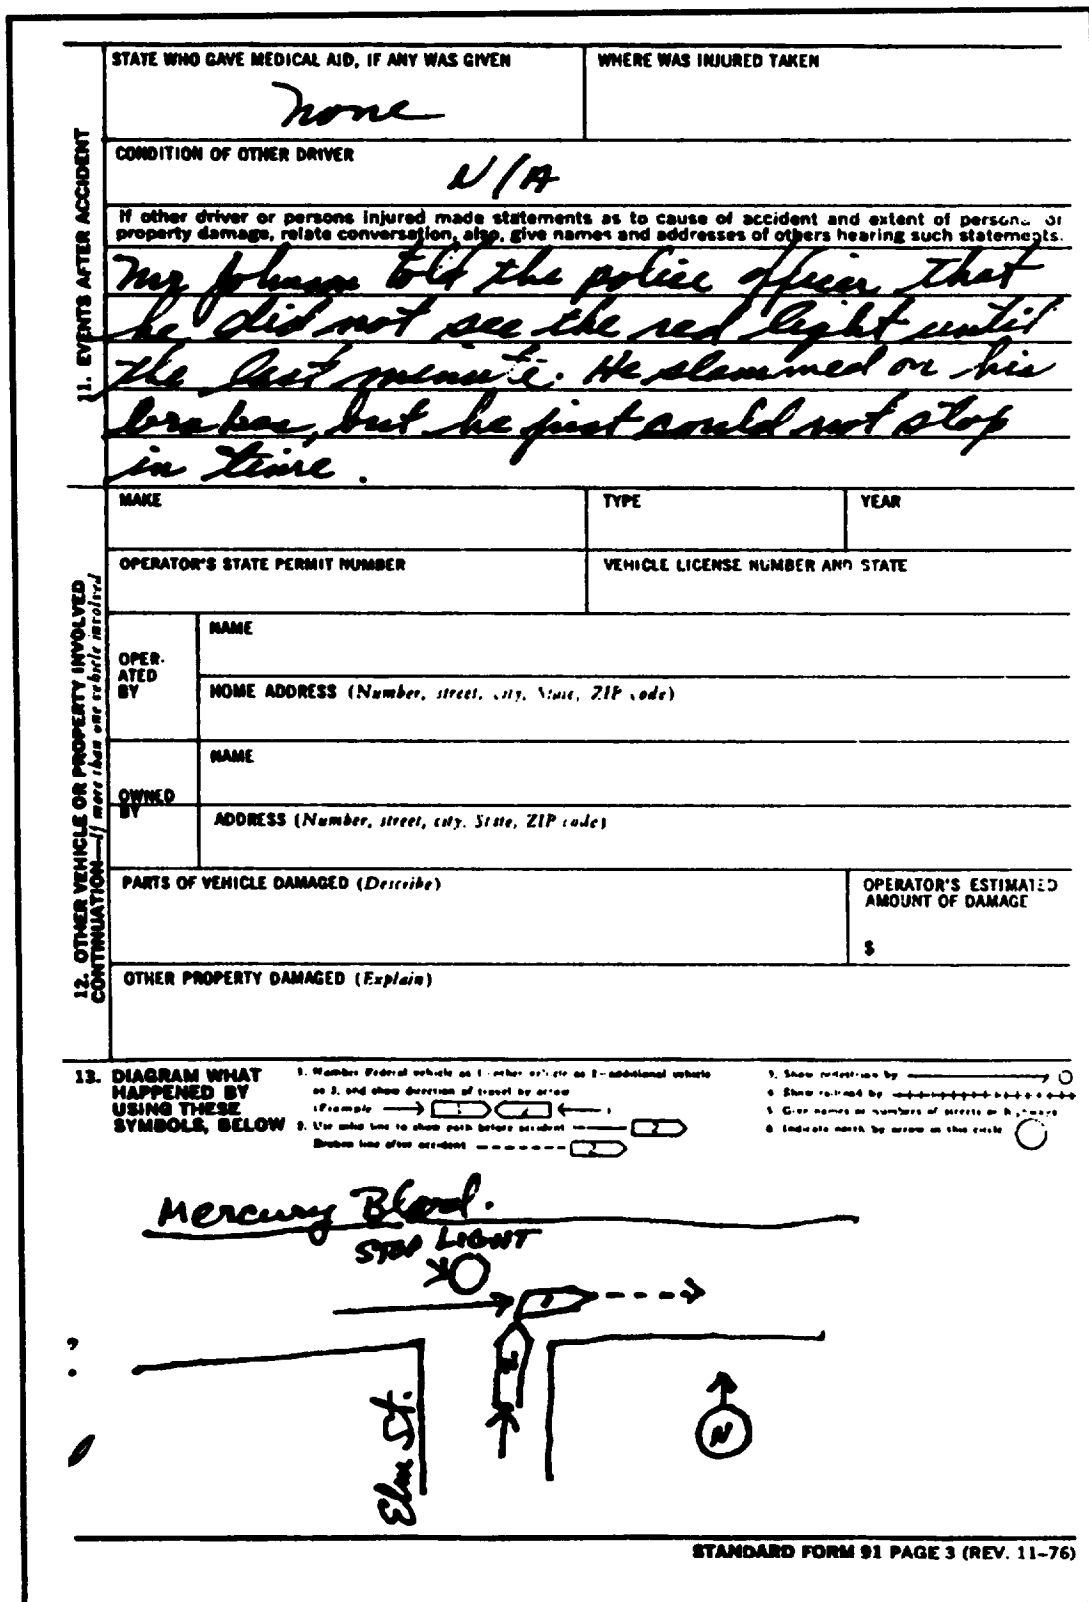 STATE WHO GAVE MEDICAL AID, IF ANY WAS GIVEN
WHERE WAS INJURED TAKEN
None
CONDITION OF OTHER DRIVER
N/A
11. EVENTS AFTER ACCIDENT
If other driver or persons injured made statements as to cause of accident and extent of persons or
property damage, relate conversation, also, give names and addresses of others hearing such statements.
Mr Johnson told the police officer that
he did not see the red light until
the last minute. He slammed on his
brakes, but he just could not stop
in time.
12. OTHER VEHICLE OR PROPERTY INVOLVED
CONTINUATION—If more than one vehicle involved
MAKE
TYPE
YEAR
OPERATOR'S STATE PERMIT NUMBER
VEHICLE LICENSE NUMBER AND STATE
OPER-
ATED
BY
NAME
HOME ADDRESS (Number, street, city, State, ZIP code)
OWNED
BY
NAME
ADDRESS (Number, street, city, State, ZIP code)
PARTS OF VEHICLE DAMAGED (Describe)
OPERATOR'S ESTIMATED
AMOUNT OF DAMAGE
$
OTHER PROPERTY DAMAGED (Explain)
13. DIAGRAM WHAT
HAPPENED BY
USING THESE
SYMBOLS, BELOW
1. Number Federal vehicle as 1—other vehicle as 2—additional vehicle
as 3, and show direction of travel by arrow
(Example 1 2 )
2. Use solid line to show path before accident 2
Broken line after accident 2
3. Show pedestrian by
4. Show railroad by
5. Give names or numbers of streets or highways
6. Indicate north by arrow in this circle
Mercury Blvd.
STOP LIGHT
1
2
Elm St.
N
STANDARD FORM 91 PAGE 3 (REV. 11-76)